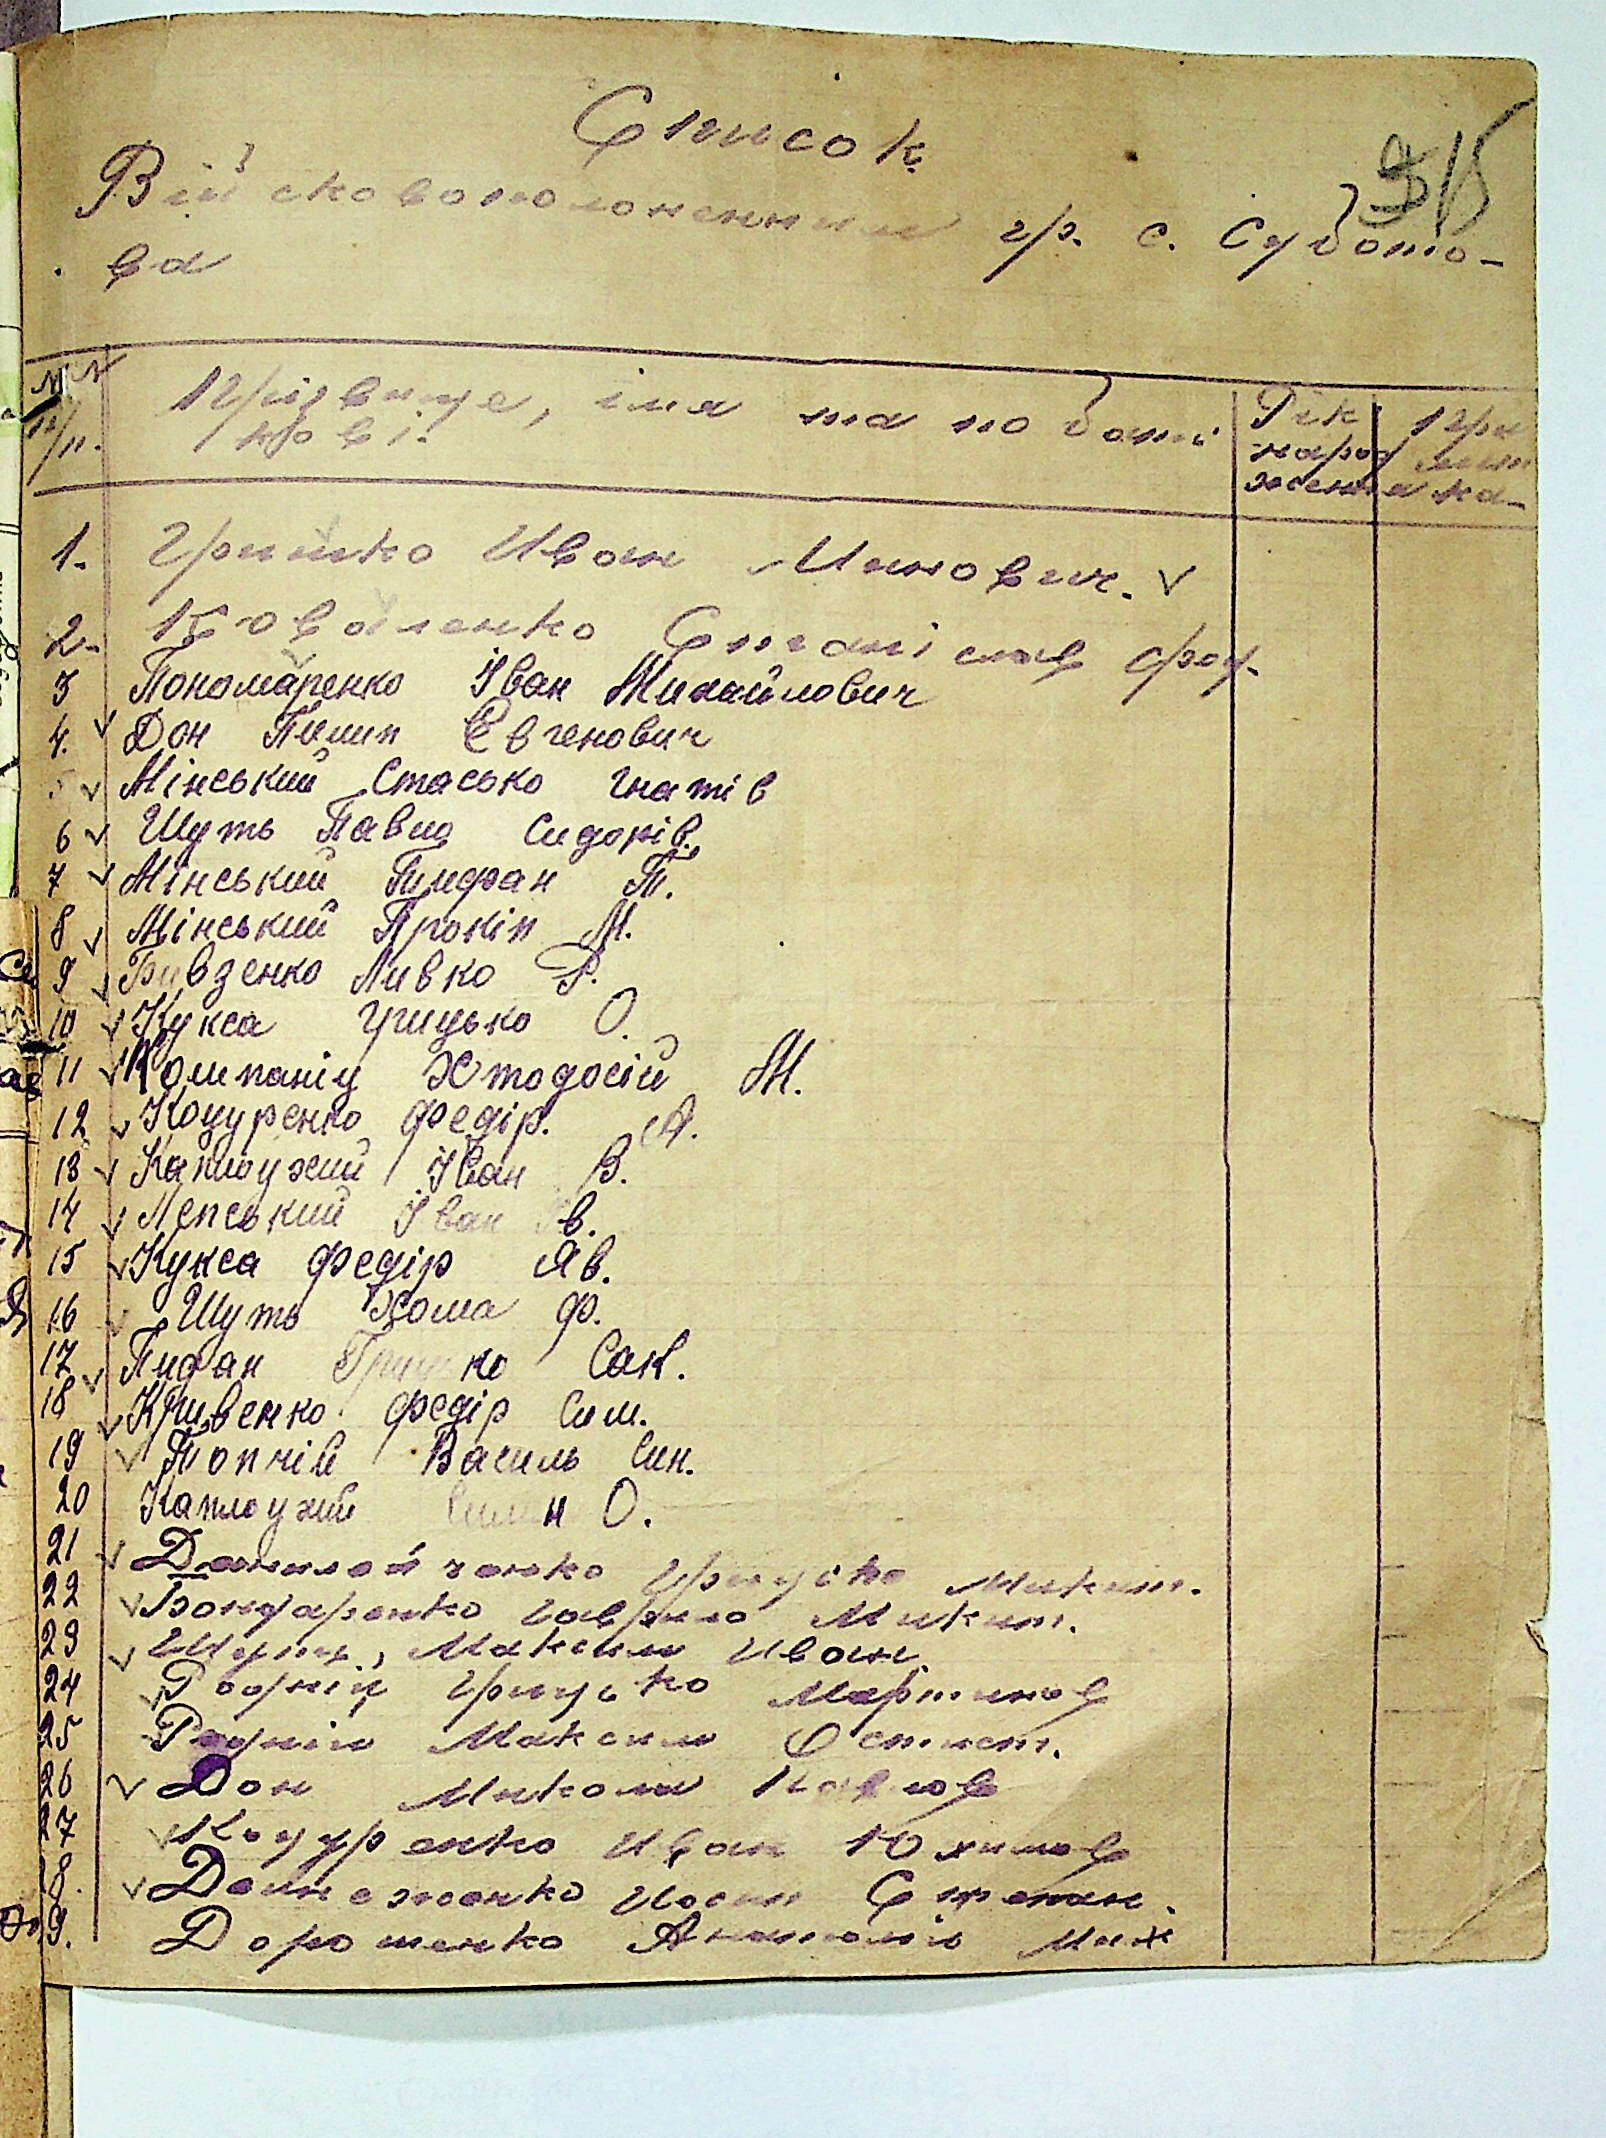 Список
Військовополоненим гр. с. Субото-
ва
№№ Прізвище, імя та по баті Рік При
п/п. крові. народ міт
ження ка-
1. Грицко Иван Минович.
2. Коваленко Станіслав
3 Пономаренко Іван Михайлович
4. Дон Пилип Євгенович
5 Мінський Стасько Гнатів
6 Шуть Павло Сидорів
7 Мінський Т.
8 Мінський Прокіп М.
9 Бивзенко Ливко Р.
10 Кукса Грицько О.
11 Компаніц Хтодосій М.
12 Коцуренко Федір. А.
13 Каплоухий Іван В.
14 Лепський Іван Ів.
15 Кукса Федір Яв.
16 Шуть Хома Ф.
17 Пидан Грицько Сак.
18 Кривенко Федір Сим.
19 Топчій Василь Син.
20 Каплоухий Симен О.
21 Данилейченко Грицько Микит.
22 Бондаренко Гаврило Микит.
23 Максим Иван.
24 Роднін Грицько Мартинов
25 Роднін Максим
26 Дон Микола Павлов
27 Коцуренко Иван Юхимов
8. Йосип Степан.
9. Дорошенко Анатолій Мих